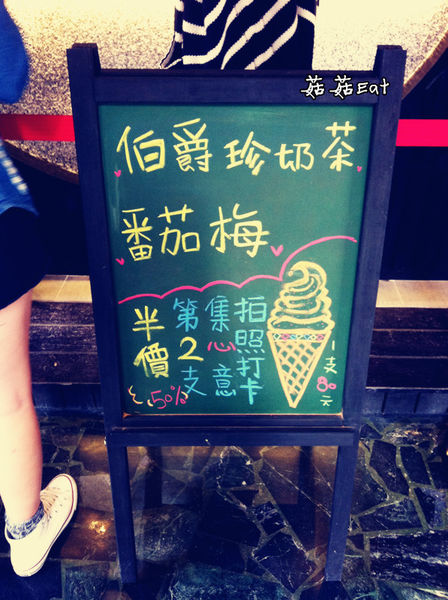 菇菇Eat
伯爵珍奶茶
番茄梅
拍照打卡
集心意
第2支
半價
50%
1支80元